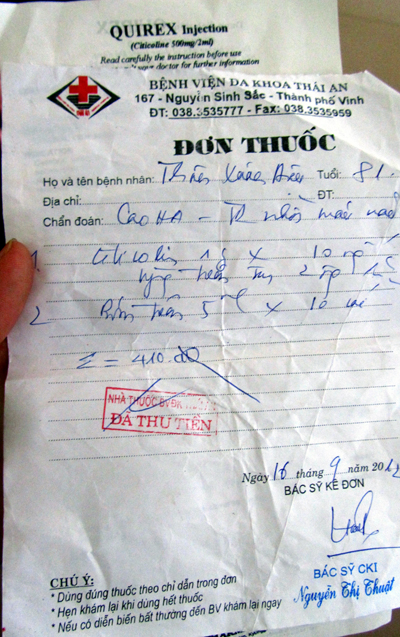 QUIREX Injection
(Citicoline 500mg/2ml)
Read carefully the instruction before use
your doctor for further information
BỆNH VIỆN ĐA KHOA THÁI AN
167 - Nguyễn Sinh Sắc - Thành phố Vinh
ĐT: 038.3535777 - Fax: 038.3535959
ĐƠN THUỐC
Họ và tên bệnh nhân: Tuổi: 81
Địa chỉ: ĐT:
Chẩn đoán: Cao HA - nhồi máu não
1. 1g x 10
2 Bơm tiêm 5ml x 10 cái
Σ = 410.
NHÀ THUỐC BVĐK
ĐÃ THU TIỀN
Ngày 16 tháng 9 năm 2012
BÁC SỸ KÊ ĐƠN
BÁC SỸ CKI
Nguyễn Thị Thuật
CHÚ Ý:
* Dùng đúng thuốc theo chỉ dẫn trong đơn
* Hẹn khám lại khi dùng hết thuốc
* Nếu có diễn biến bất thường đến BV khám lại ngay